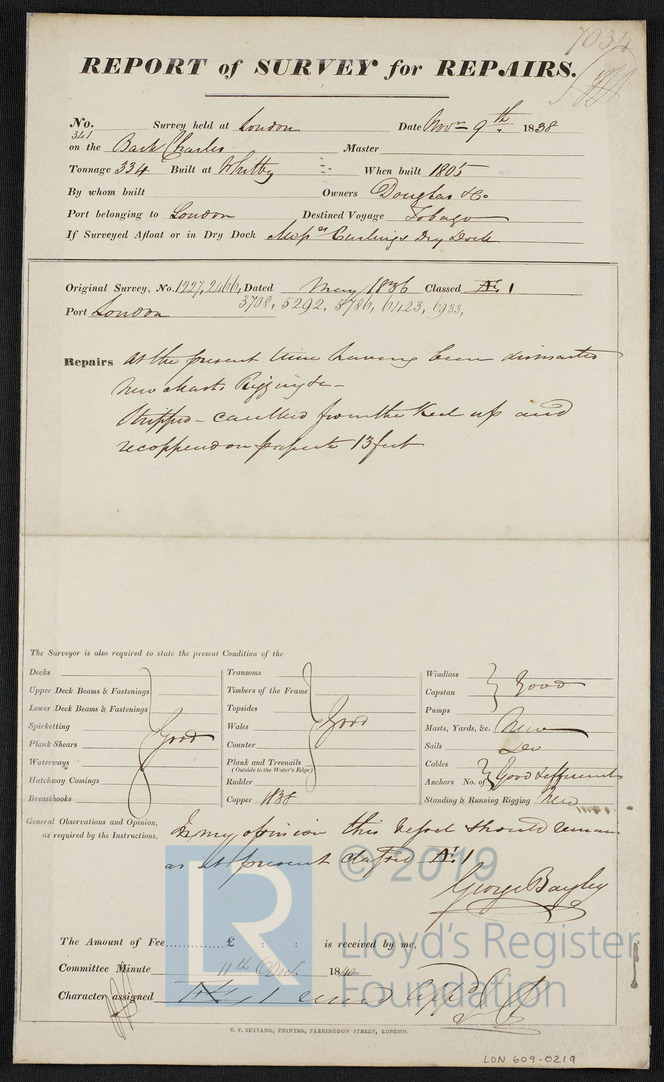 7034
REPORT of SURVEY for REPAIRS.
No. 341 Survey held at London Date Novr 9th 1838
on the Bark Charles Master
Tonnage 334 Built at Whitby When built 1805
By whom built Owners Douglas & Co
Port belonging to London Destined Voyage Tobago
If Surveyed Afloat or in Dry Dock Messrs Curlings Dry Dock
Original Survey, No. 1227, 2466, Dated May 1836 Classed Æ 1
3708, 5292, 5786, 6423, 6933,
Port London
Repairs at the present time having been dismasted
New Masts Rigging &c
Stripped - caulked from the Keel up and
recoppered on paper to 13 feet
The Surveyor is also required to state the present Condition of the
Decks
Upper Deck Beams & Fastenings
Lower Deck Beams & Fastenings
Spirketting
Plank Shears
Waterways
Hatchway Comings
Breasthooks
Good
Transoms
Timbers of the Frame
Topsides
Wales
Counter
Plank and Treenails
(Outside to the Water's Edge)
Rudder
Good
Copper 1838
Windlass
Capstan
Good
Pumps
Masts, Yards, &c. New
Sails Do
Cables
Anchors No. of
Good & sufficient
Standing & Running Rigging New
General Observations and Opinion,
as required by the Instructions,
In my opinion this Vessel should remain
as at present classed Æ 1
George Bayley
The Amount of Fee............£ : : is received by me,
Committee Minute 11th Decr 1840
Character assigned Æ 1
C. F. SEYFANG, PRINTER, FARRINGDON STREET, LONDON.
LR
© 2019
Lloyd's Register
Foundation
LON 609-0219